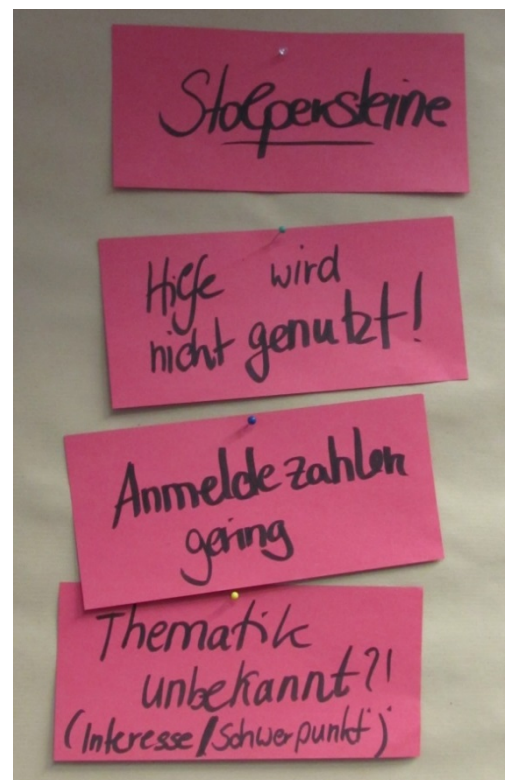 Stolpersteine
Hilfe wird
nicht genutzt!
Anmeldezahlen
gering
Thematik
unbekannt?!
(Interesse/Schwerpunkt)